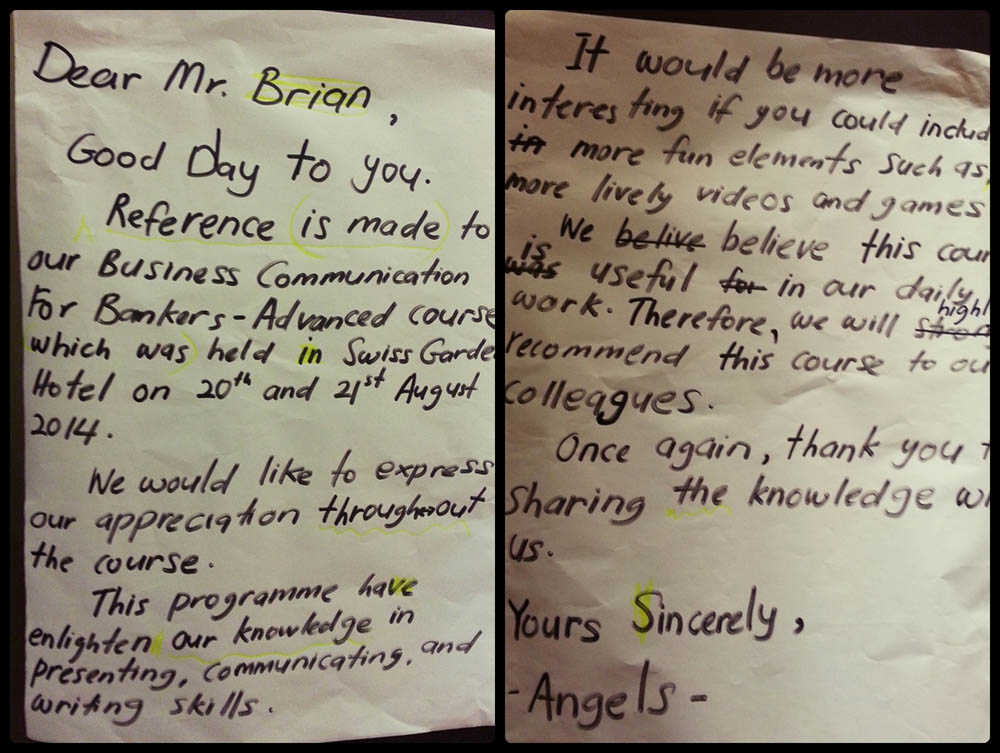 Dear Mr. Brian,
Good Day to you.
Reference is made to
our Business Communication
For Bankers - Advanced course
which was held in Swiss Garde
Hotel on 20th and 21st August
2014.
We would like to express
our appreciation throughout
the course.
This programme have
enlighten our knowledge in
presenting, communicating, and
writing skills.
It would be more
interesting if you could includ
in more fun elements such as
more lively videos and games
We belive believe this cour
was is useful for in our daily
work. Therefore, we will highl
recommend this course to ou
colleagues.
Once again, thank you
sharing the knowledge wi
us.
Yours Sincerely,
- Angels -